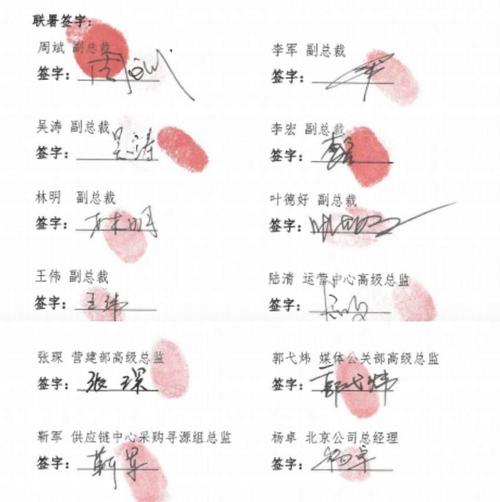 联署签字：
周斌 副总裁
签字：周斌
李军 副总裁
签字：
吴涛 副总裁
签字：吴涛
李宏 副总裁
签字：
林明 副总裁
签字：林明
叶德好 副总裁
签字：
王伟 副总裁
签字：王玮
陆清 运营中心高级总监
签字：
张琛 营建部高级总监
签字：张琛
郭弋炜 媒体公关部高级总监
签字：郭弋炜
靳军 供应链中心采购寻源组总监
签字：靳军
杨卓 北京公司总经理
签字：杨卓